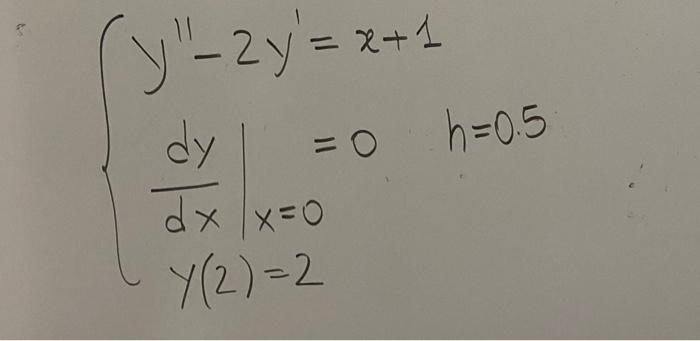 y'' - 2y' = x + 1
dy/dx | x=0 = 0 h=0.5
y(2) = 2